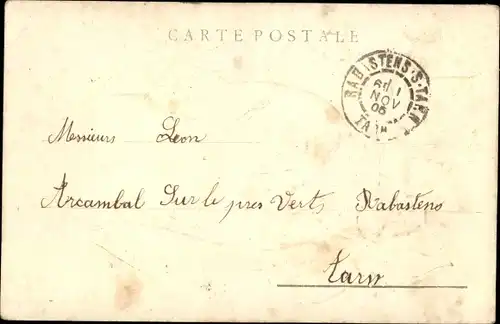 CARTE POSTALE
RABASTENS-S-TARN
NOV
05
TARN
Messieurs Leon
Arcambal Sur le pres Verts Rabastens
Tarn